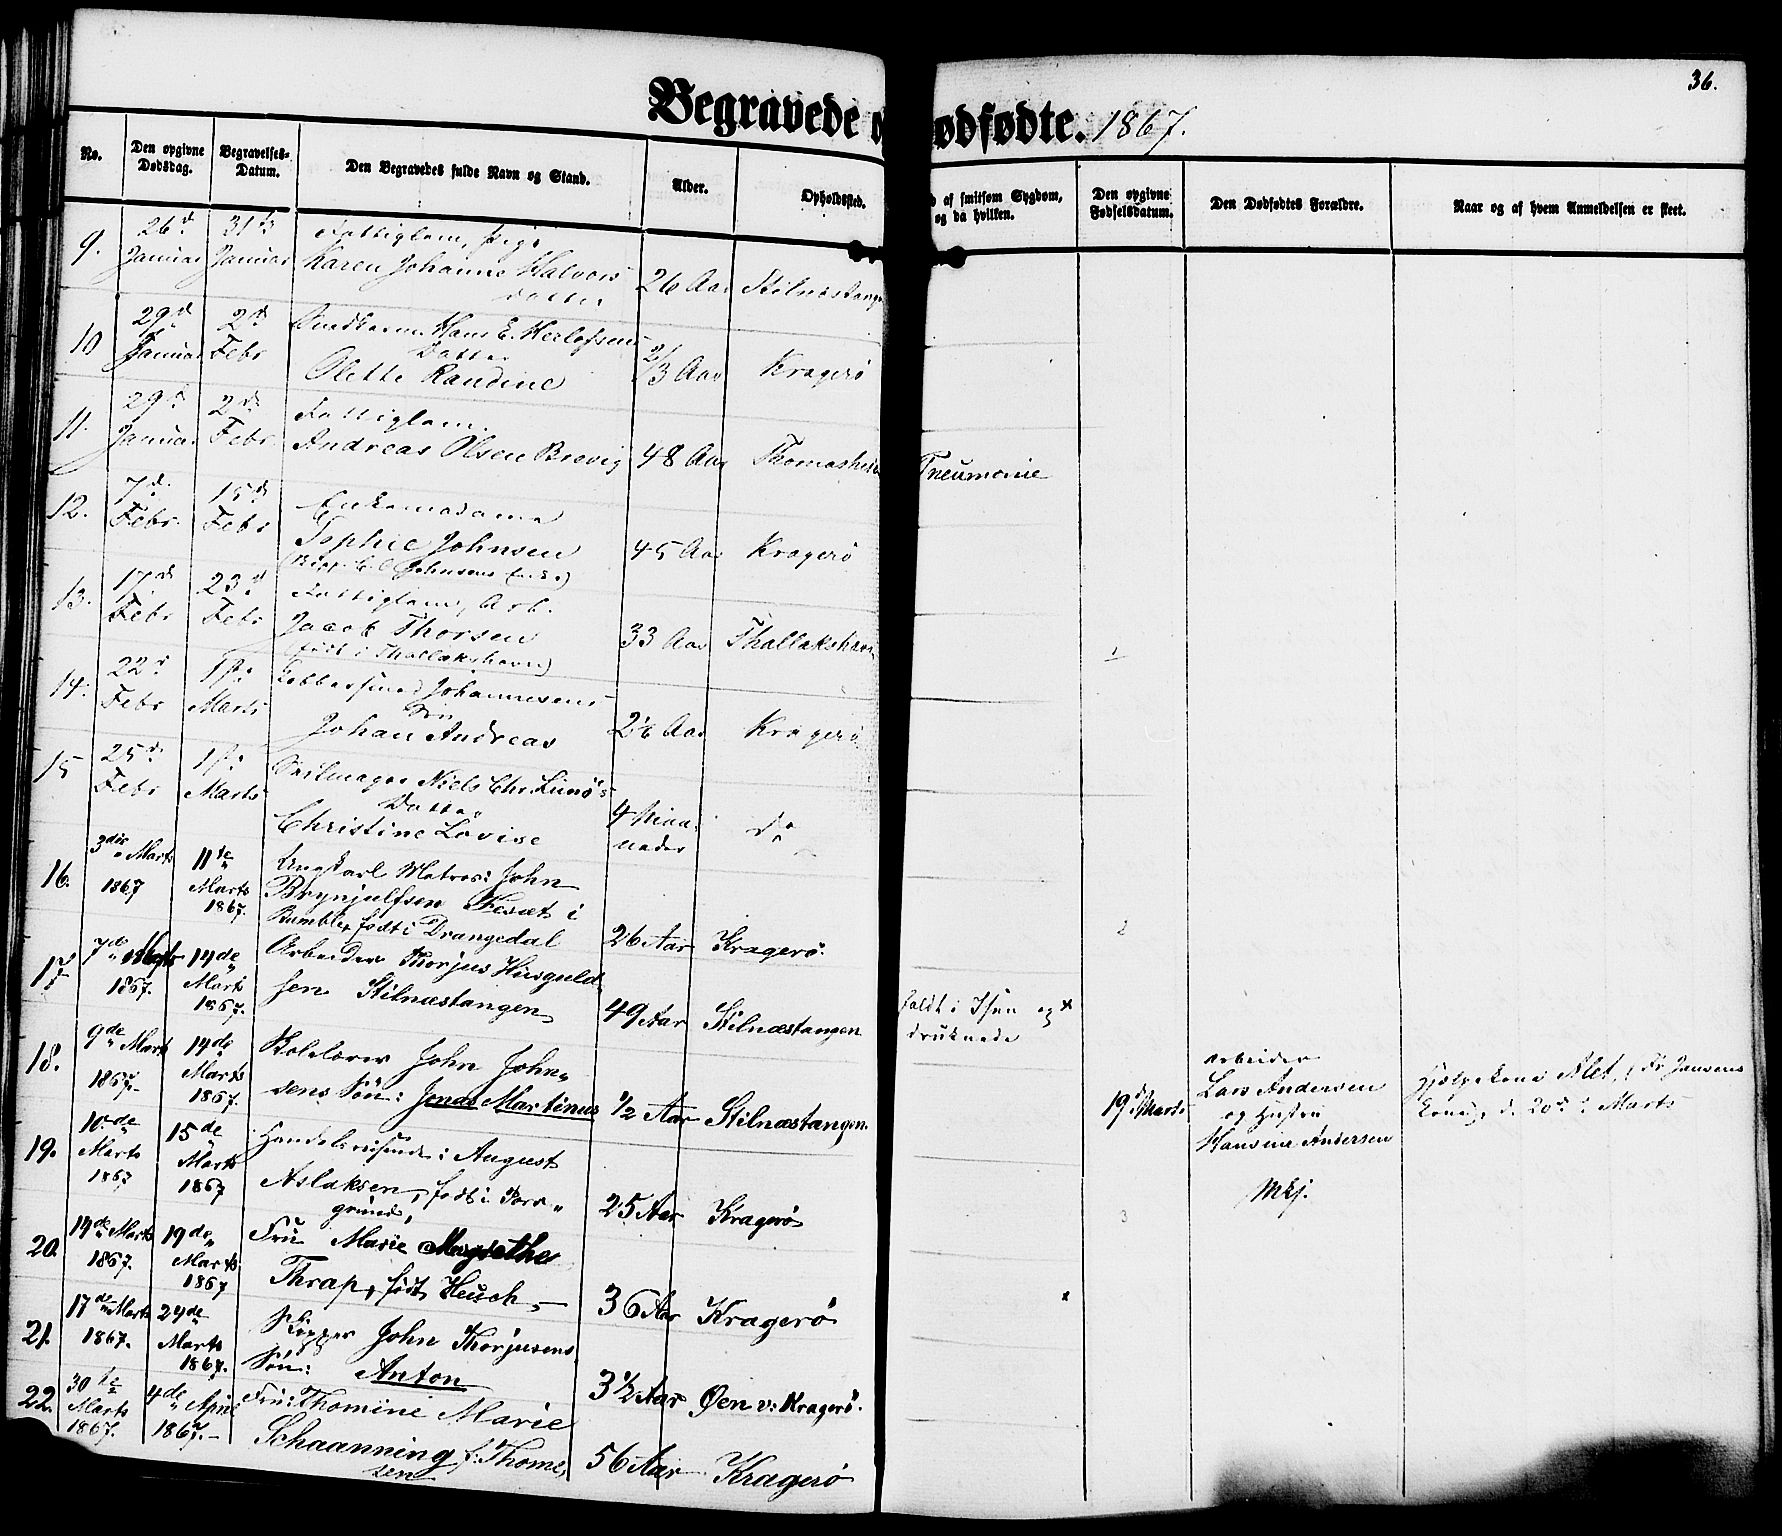 36.
Begravede o ødfødte. 1867.
No.
Den opgivne Dødsdag.
Begravelses-Datum.
Den Begravedes fulde Navn og Stand.
Alder.
Opholdssted.
d af smitsom Sygdom, og da hvilken.
Den opgivne Fødselsdatum.
Den Dødfødtes Forældre.
Naar og af hvem Anmeldelsen er skeet.
9.
26d Januar
31te Januar
Fattiglem, Pige
Karen Johanne Halvors
datter
26 Aar
Stilnæstangen
10
29d Januar
2d Febr
Hans E. Herlofsens
Datter
Olette Randine
2/3 Aar
Kragerø
11.
29d Januar
2d Febr.
Fattiglem.
Andreas Olsen Brevig
48 Aar
Pneumonie
12.
7d Febr.
15d Febr
Enkemadame
Sophie Johnsen
45 Aar
Kragerø
13.
17d Febr
23d Febr
Fattiglem, Arb.
Jacob Thorsen
(født i Thallakshavn)
33 Aar
Thallakshavn
1
14.
22d Febr
1st: Marts
Kobbersmed Johannesens
Søn
Johan Andreas
Kragerø
15
25d. Febr
1st: Marts
Seilmager Niels Chr. Lunø's
Datter
Christine Lovise
4 Maaneder
do
16.
3die Marts 1867
11te Marts 1867.
Ungkarl Matros: John
Brynjulfsen Fesæt i
Bamble, født i Drangedal
26 Aar
Kragerø.
2
17
7de Marts 1867.
14de Marts 1867.
Arbeider Thorjus Husguld-
sen Stilnæstangen
49 Aar
Stilnæstangen
faldt i Isen og
druknede
18.
9de Marts 1867.
14de Marts 1867.
John John-
sens Søn: Jonas Martinus
1/2 Aar
Stilnæstangen.
19d Marts
Arbeider
Lars Andersen
og Hustru
Hansine Andersen
Mkj.
Hjælpekone Alet, Fr Jansens
Kone, d. 20d Marts
19.
10de Marts 1867
15de Marts 1867
Handelsreisende: August
Aslaksen, født i Pors-
grund,
25 Aar
Kragerø
3
20.
14de Marts 1867.
19de Marts 1867
Fru Marie Magrethe
Thrap, født Heuch,
36 Aar
Kragerø
21.
17de Marts 1867.
24de Marts 1867.
Skipper John Thorjusens
Søn: Anton
3 1/2 Aar
Øen v: Kragerø.
22.
30te Marts 1867.
4de April 1867.
Fru: Thomine Marie
Schaanning f: Thome-
sen
56 Aar
Kragerø